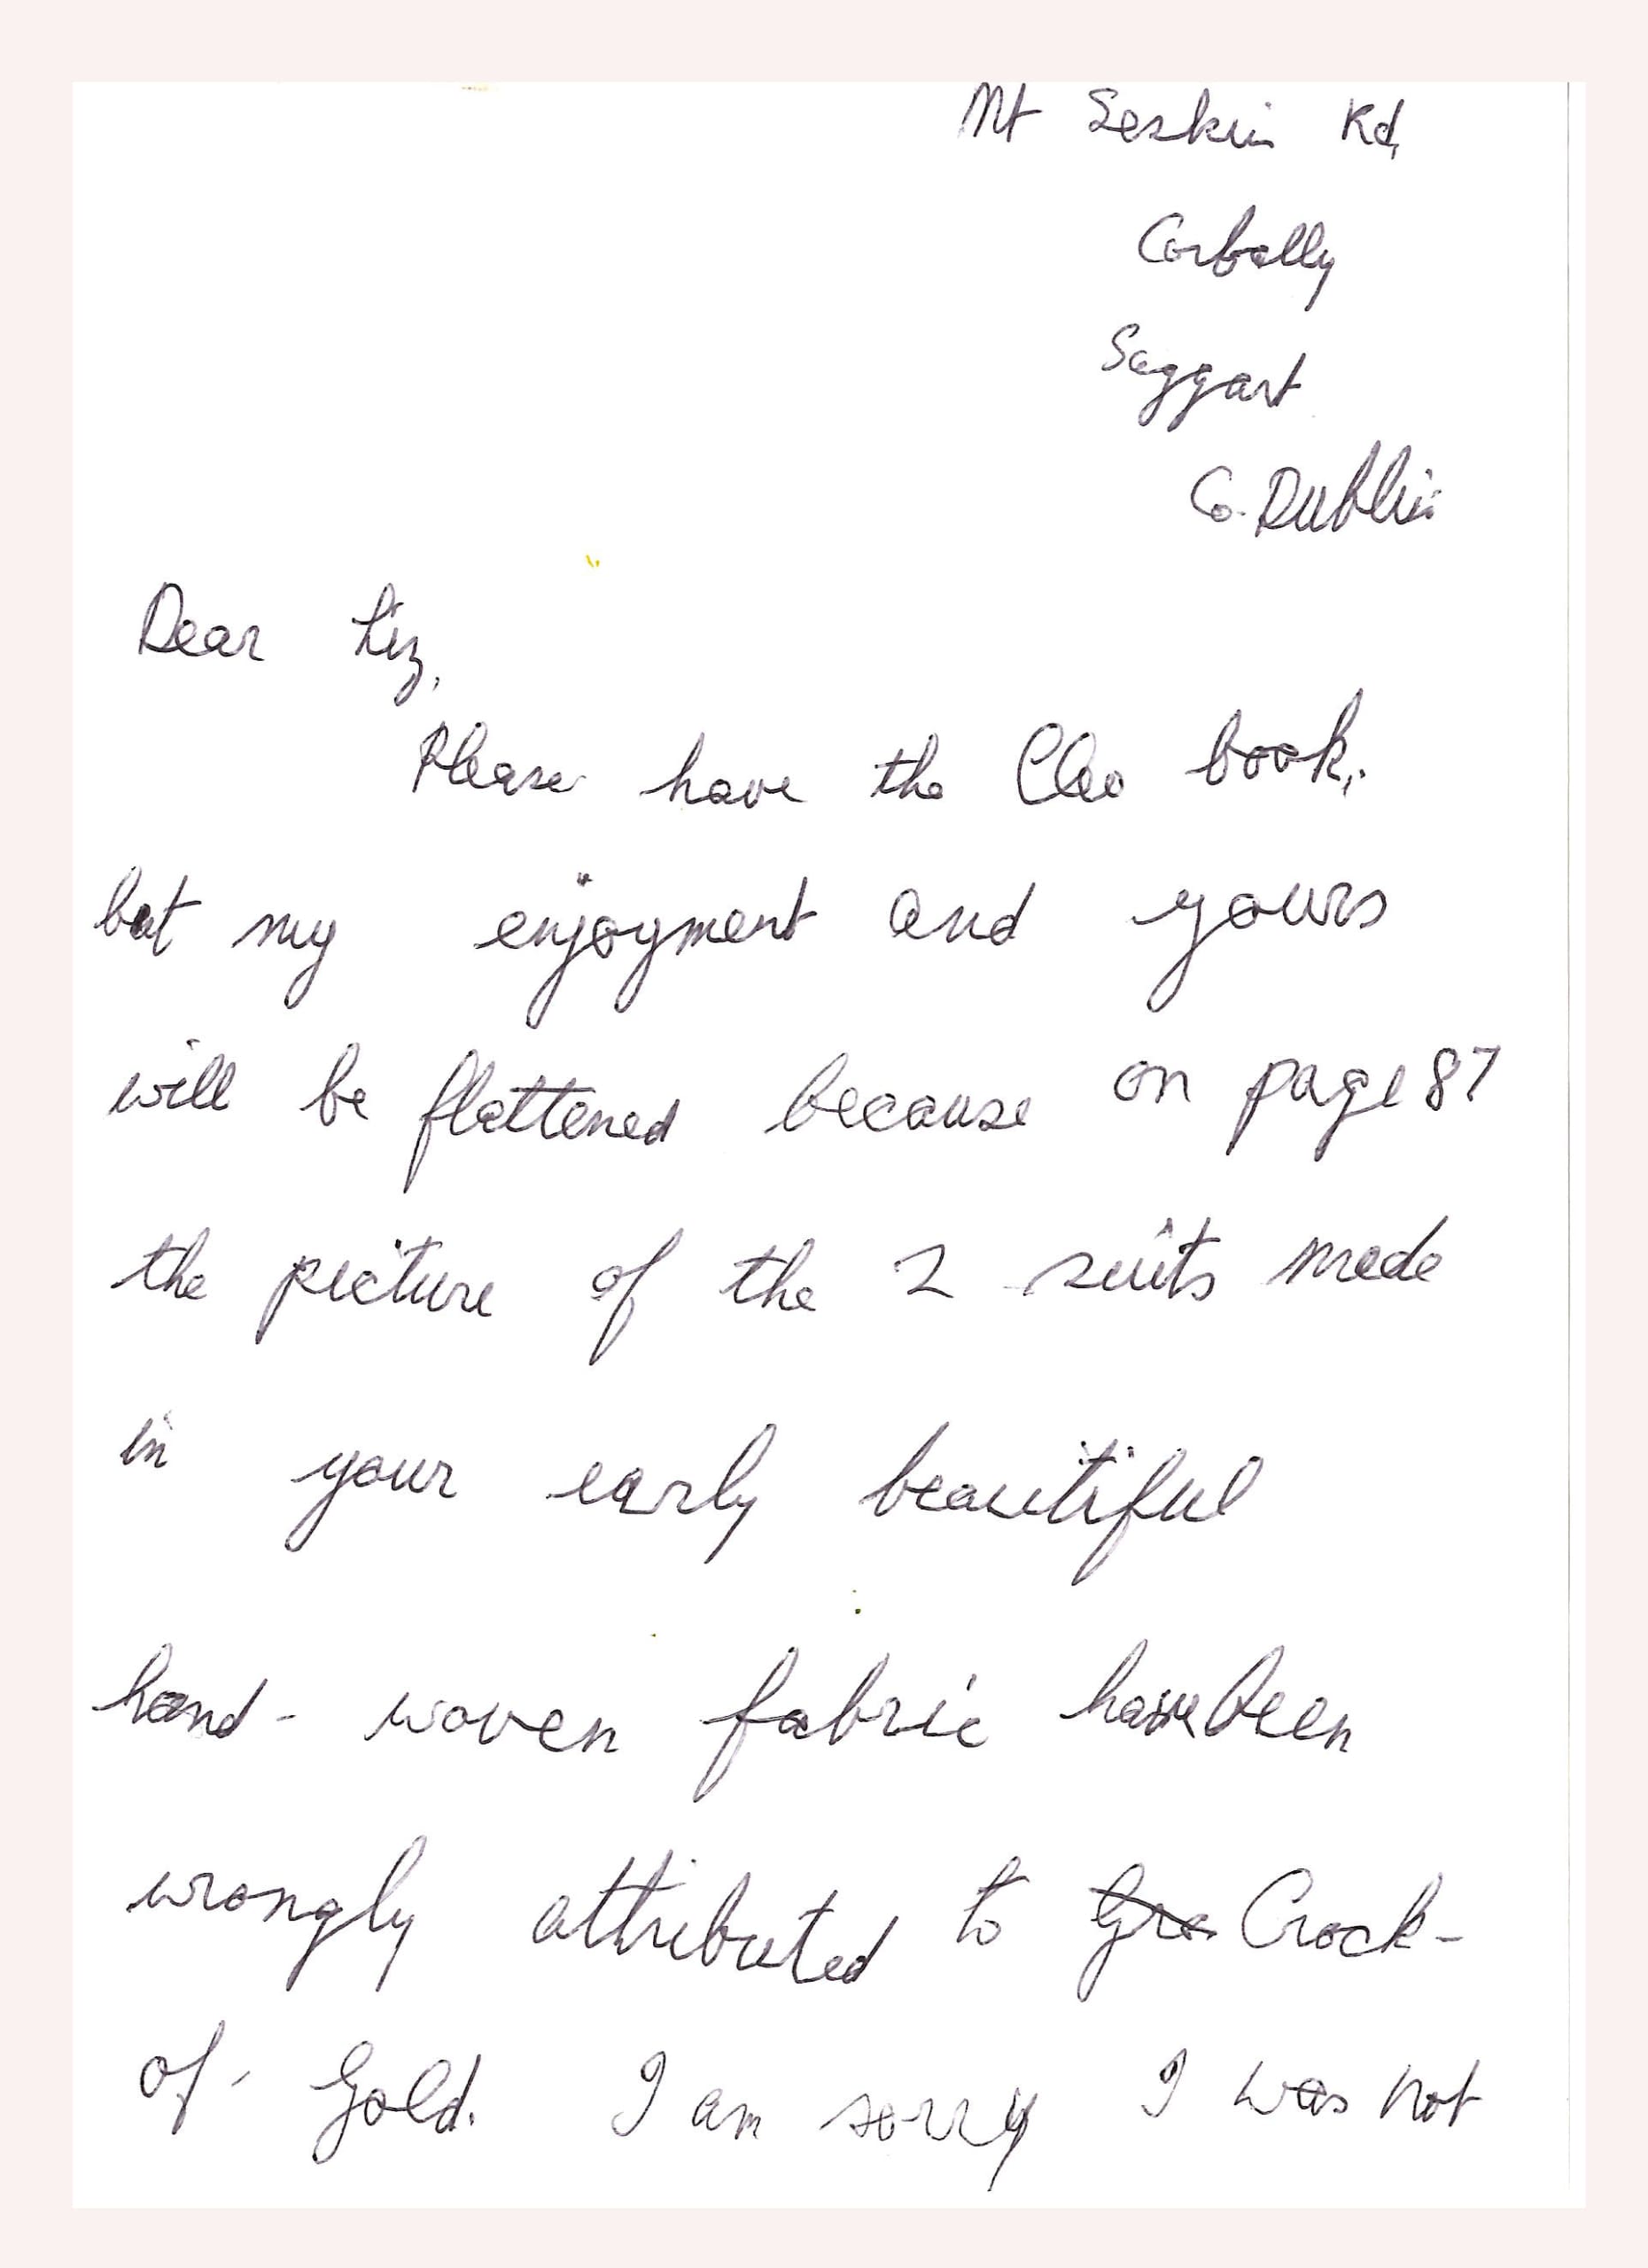 Mt Seskin Rd,
Corbally
Saggart
Co. Dublin
Dear Liz,
Please have the Cleo book,
but my enjoyment and yours
will be flattened because on page 87
the picture of the 2 suits made
in your early beautiful
hand - woven fabric have been
wrongly attributed to Crock-
of - Gold. I am sorry I was not